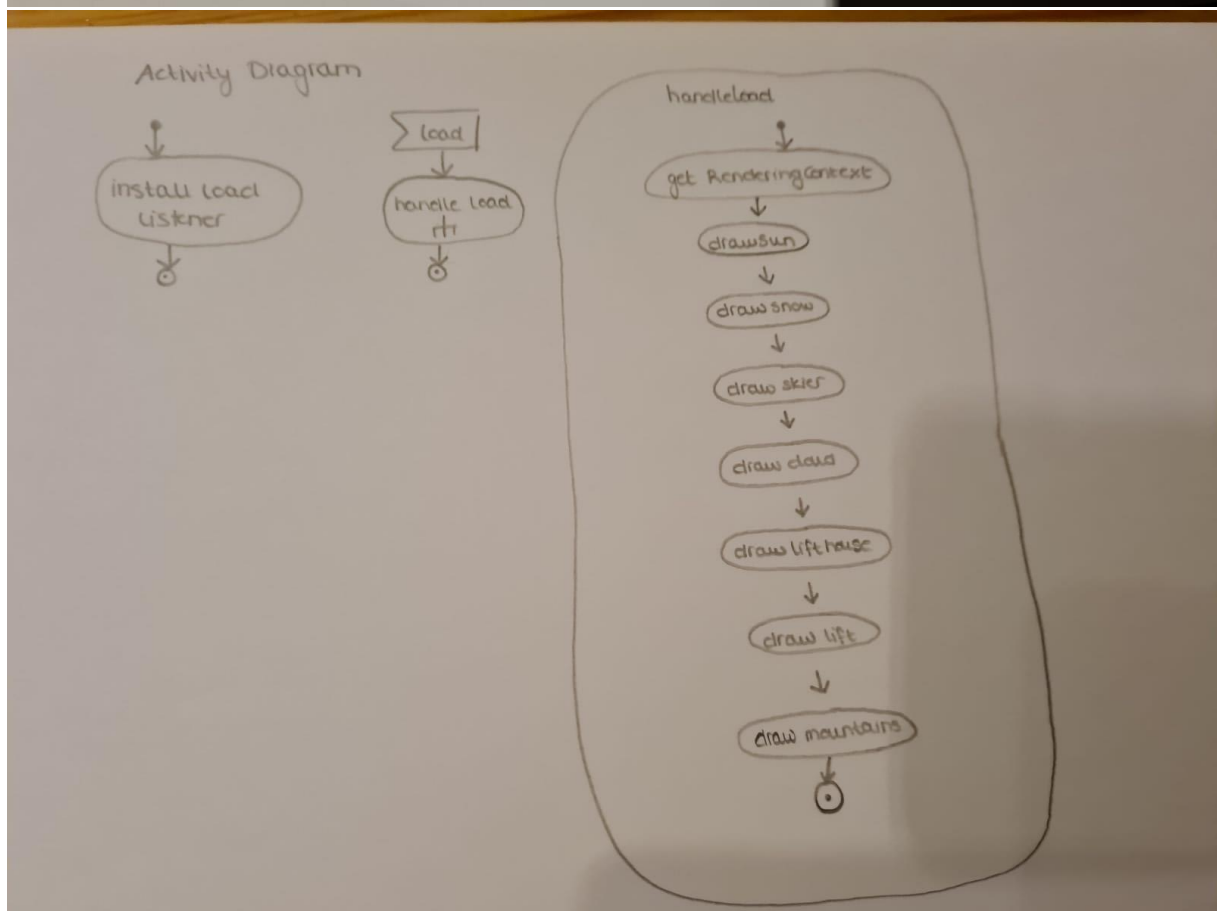 Activity Diagram
install load
Listener
load
handle load
handleload
get RenderingContext
drawSun
draw snow
draw skier
draw cloud
draw lift house
draw lift
draw mountains